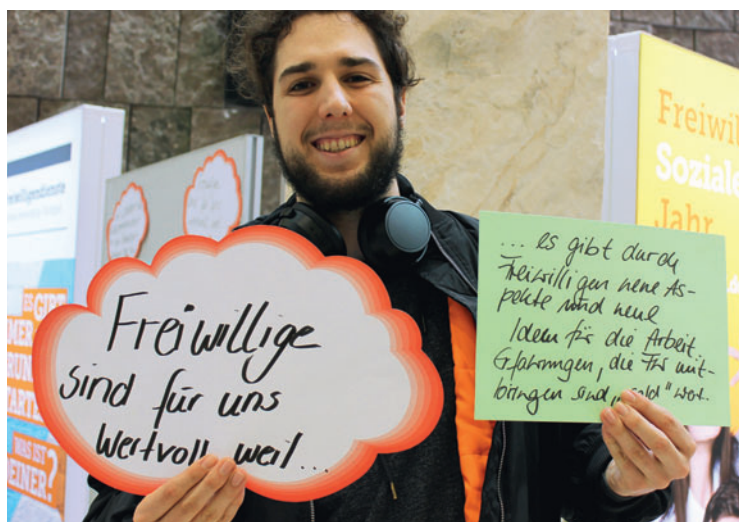 Freiwillige
sind für uns
wertvoll, weil...
... es gibt durch
Freiwilligen neue As-
pekte und neue
Ideen für die Arbeit.
Erfahrungen, die FWs mit-
bringen sind „Gold" wert.
Freiwil
Soziale
Jahr
ES GIBT
MER
RUN
TARTE
WAS IST
EINER?